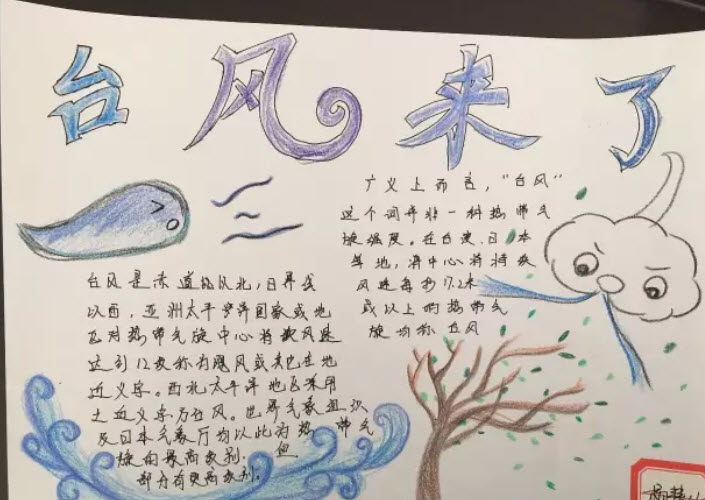 台风来了
广义上而言，"台风"
这个词并非一种热带气
旋强度。在台湾、日本
等地，将中心持续
风速每秒17.2米
或以上的热带气
旋均称台风
台风是赤道以北，日界线
以西，亚洲太平洋国家或地
区对热带气旋中心持续风速
达到12级称为飓风或其它在地
近义字。西北太平洋地区采用
之近义字为台风。世界气象组织
及日本气象厅均以此为热带气
旋的最高级别。但
部分有更高级别。